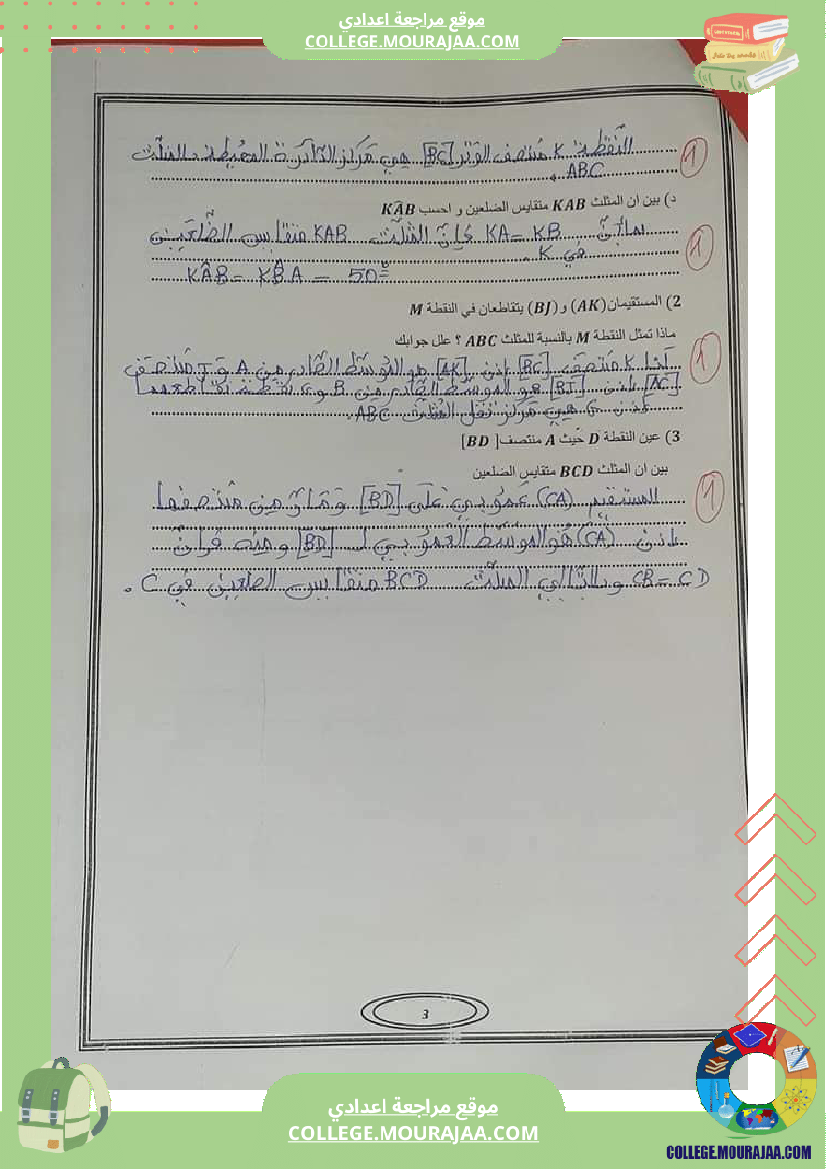 موقع مراجعة اعدادي
COLLEGE.MOURAJAA.COM
النّقطة K مُنتصف الوَتر [BC] هي مَركز الدّائرة المحيطة بالمثلّث
ABC.
1
د) بين ان المثلث KAB متقايس الضلعين و احسب KÂB
بما أنّ KA = KB فإنّ المُثلّث KAB متقايس الضّلعين
في K.
1
KÂB = KB̂A = 50°
2) المستقيمان (AK) و (BJ) يتقاطعان في النقطة M
ماذا تمثل النقطة M بالنسبة للمثلث ABC ؟ علل جوابك
لنا K مُنتصف [BC] إذن [AK] هو المُوسّط الصّادر من A و J مُنتصف
1
[AC] إذن [BJ] هو الموسّط الصّادر من B و نقطة تقاطعهما
إذن هي مركز ثقل المُثلّث ABC.
3) عين النقطة D حيث A منتصف [BD]
بين ان المثلث BCD متقايس الضلعين
المستقيم (CA) عَمُودي على [BD] وَمَارّ من مُنتصفها
1
إذن (CA) هو الموسّط العمودي لـ [BD] و منه فإنّ
CB = CD و بالتّالي المثلّث BCD متقايس الضلعين في C.
3
موقع مراجعة اعدادي
COLLEGE.MOURAJAA.COM
COLLEGE.MOURAJAA.COM